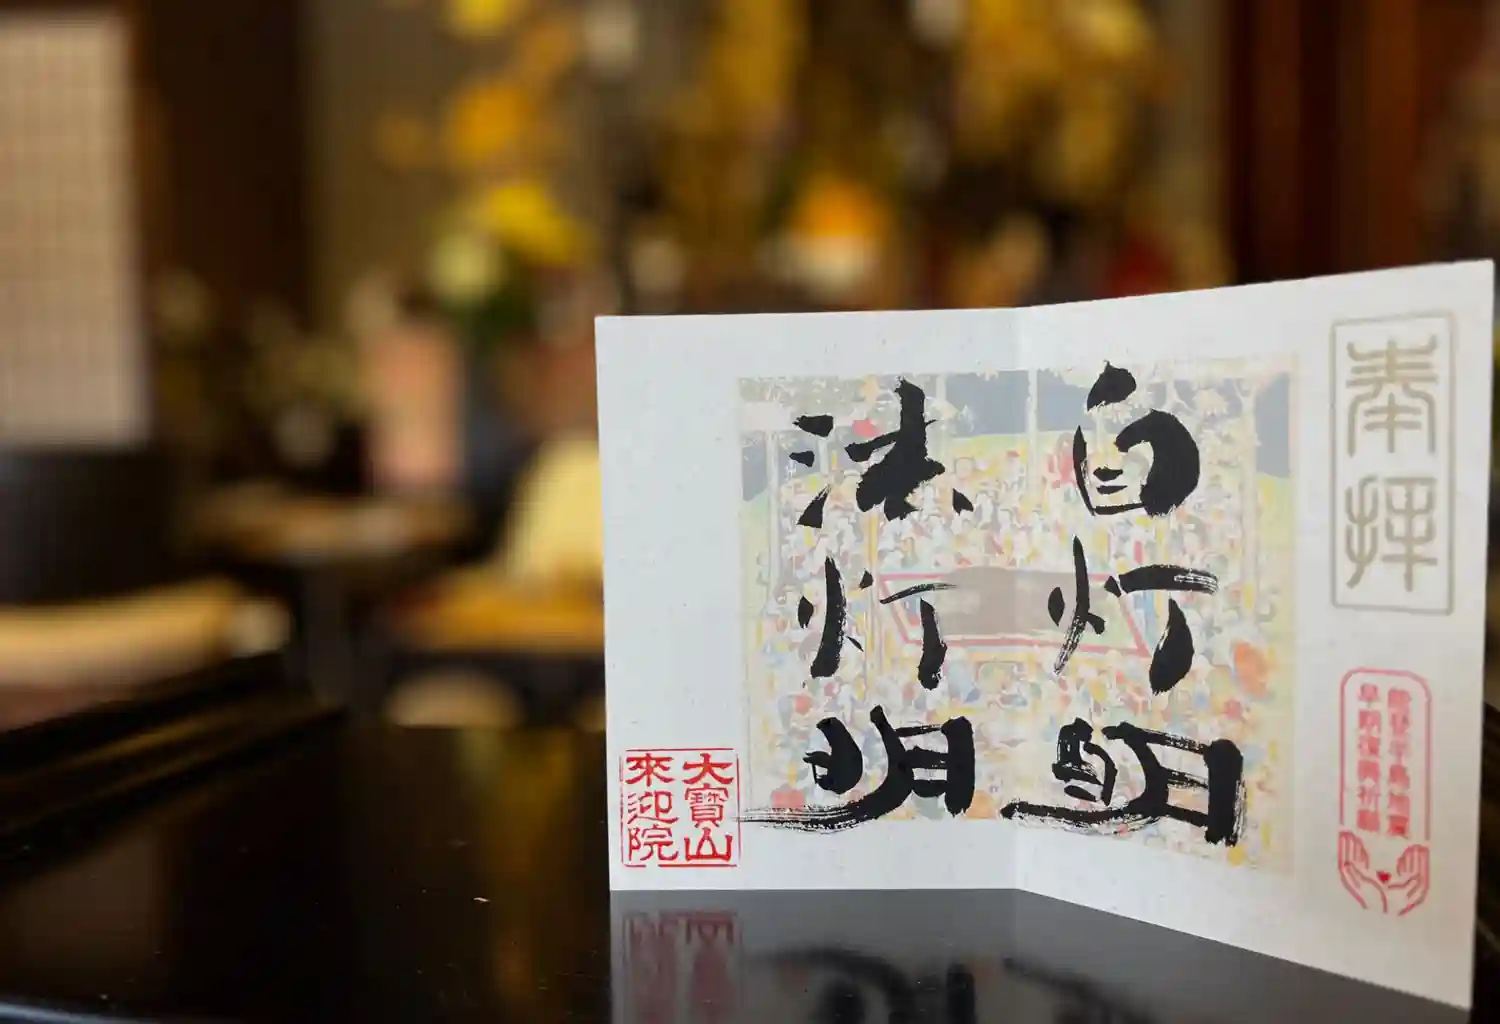 奉拝
能登半島地震
早期復興祈願
自灯明
法灯明
大寶山
來迎院